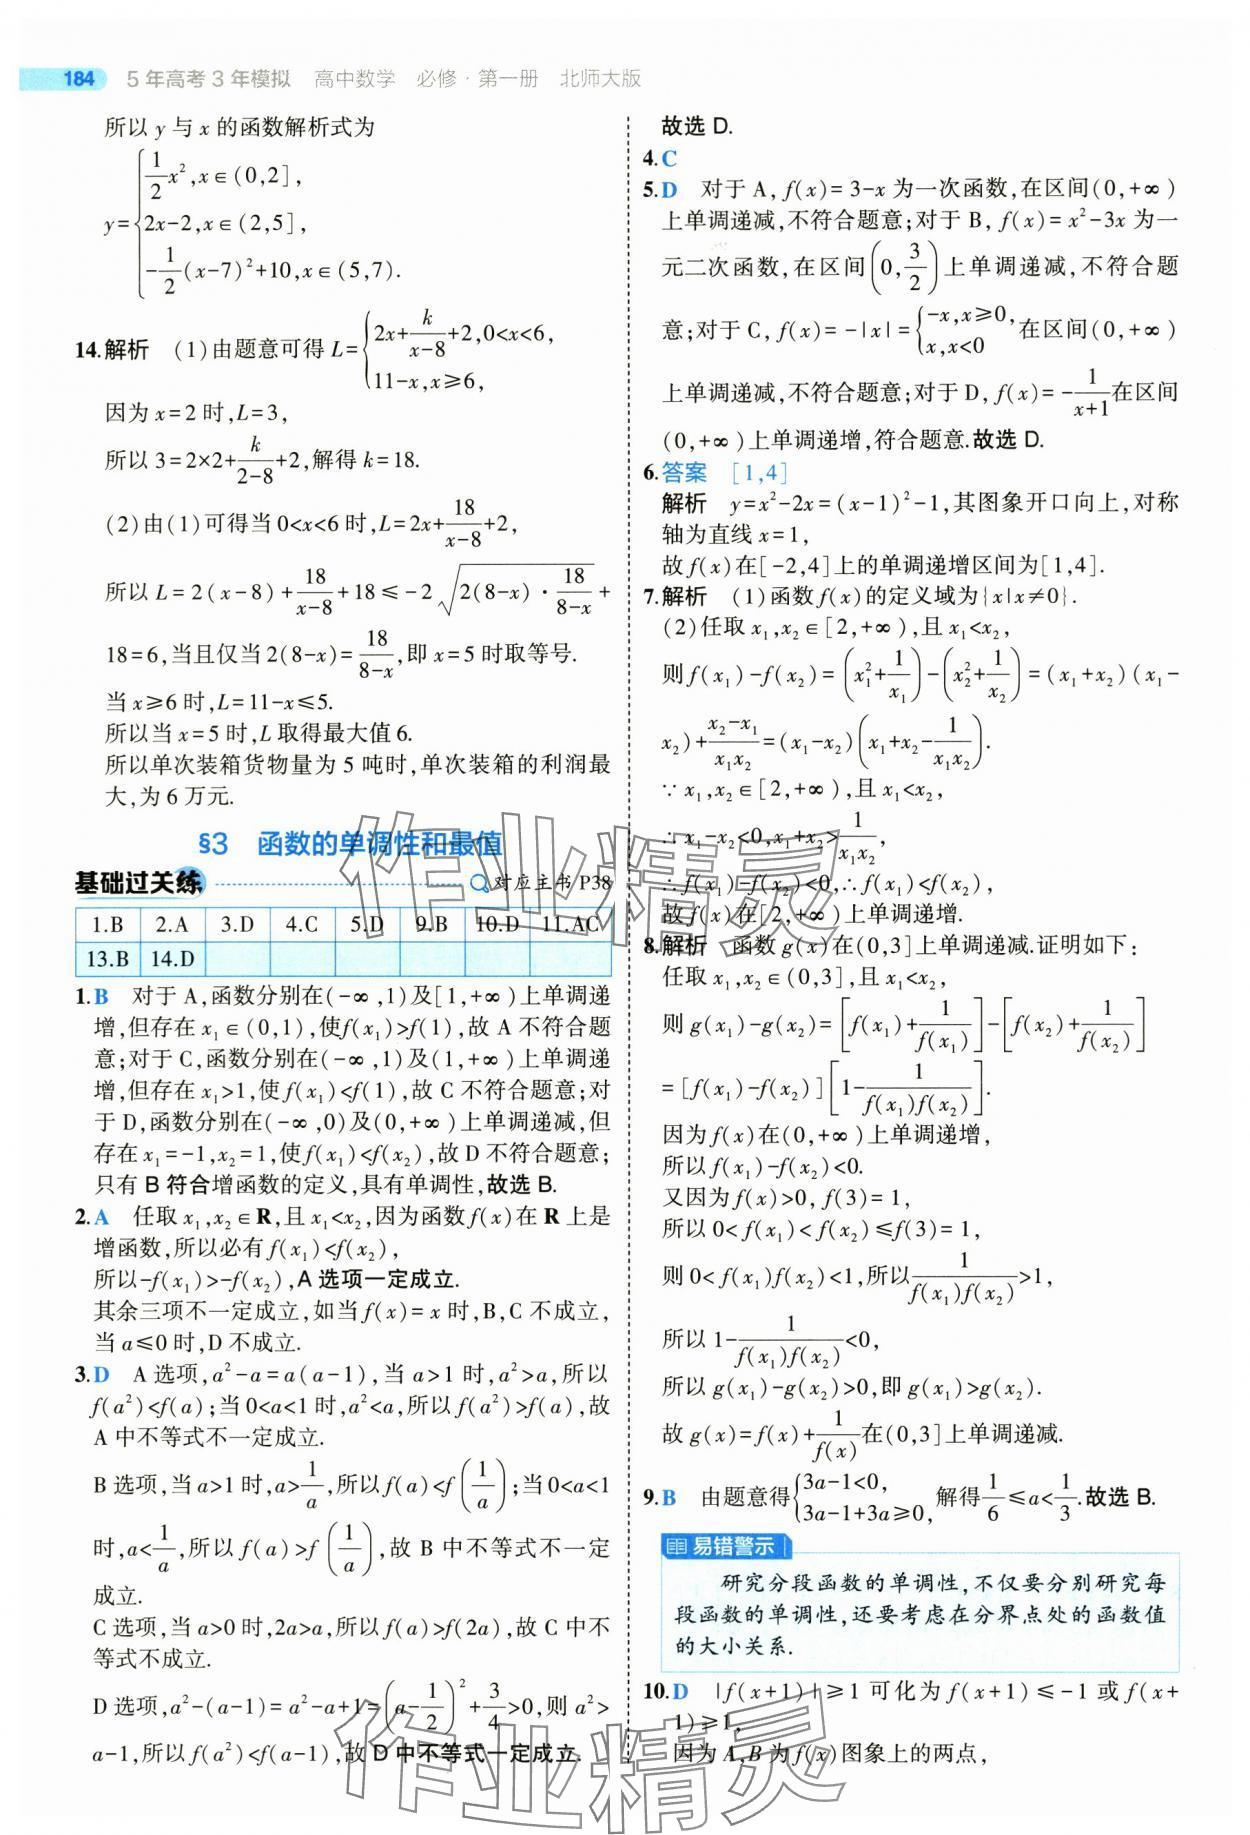 184 5年高考3年模拟 高中数学 必修·第一册 北师大版
所以 y 与 x 的函数解析式为
y={1/2 x²,x∈(0,2],
2x-2,x∈(2,5],
-1/2(x-7)²+10,x∈(5,7).
14.解析 (1)由题意可得 L={2x+k/(x-8)+2,0<x<6,
11-x,x≥6,
因为 x=2 时,L=3,
所以 3=2×2+k/(2-8)+2,解得 k=18.
(2)由(1)可得当 0<x<6 时,L=2x+18/(x-8)+2,
所以 L=2(x-8)+18/(x-8)+18≤-2√(2(8-x)·18/(8-x))+
18=6,当且仅当 2(8-x)=18/(8-x),即 x=5 时取等号.
当 x≥6 时,L=11-x≤5.
所以当 x=5 时,L 取得最大值 6.
所以单次装箱货物量为 5 吨时,单次装箱的利润最
大,为 6 万元.
§3 函数的单调性和最值
基础过关练 对应主书 P38
1.B 2.A 3.D 4.C 5.D 9.B 10.D 11.AC
13.B 14.D
1.B 对于 A,函数分别在(-∞,1)及[1,+∞)上单调递
增,但存在 x₁∈(0,1),使f(x₁)>f(1),故 A 不符合题
意;对于 C,函数分别在(-∞,1)及(1,+∞)上单调递
增,但存在 x₁>1,使 f(x₁)<f(1),故 C 不符合题意;对
于 D,函数分别在(-∞,0)及(0,+∞)上单调递减,但
存在 x₁=-1,x₂=1,使f(x₁)<f(x₂),故 D 不符合题意;
只有 B 符合增函数的定义,具有单调性,故选 B.
2.A 任取 x₁,x₂∈R,且 x₁<x₂,因为函数 f(x)在 R 上是
增函数,所以必有 f(x₁)<f(x₂),
所以-f(x₁)>-f(x₂),A 选项一定成立.
其余三项不一定成立,如当 f(x)=x 时,B,C 不成立,
当 a≤0 时,D 不成立.
3.D A 选项,a²-a=a(a-1),当 a>1 时,a²>a,所以
f(a²)<f(a);当 0<a<1 时,a²<a,所以 f(a²)>f(a),故
A 中不等式不一定成立.
B 选项,当 a>1 时,a>1/a,所以 f(a)<f(1/a);当 0<a<1
时,a<1/a,所以 f(a)>f(1/a),故 B 中不等式不一定
成立.
C 选项,当 a>0 时,2a>a,所以 f(a)>f(2a),故 C 中不
等式不成立.
D 选项,a²-(a-1)=a²-a+1=(a-1/2)²+3/4>0,则 a²>
a-1,所以 f(a²)<f(a-1),故 D 中不等式一定成立.
故选 D.
4.C
5.D 对于 A,f(x)=3-x 为一次函数,在区间(0,+∞)
上单调递减,不符合题意;对于 B,f(x)=x²-3x 为一
元二次函数,在区间(0,3/2)上单调递减,不符合题
意;对于 C,f(x)=-|x|={-x,x≥0, x,x<0 在区间(0,+∞)
上单调递减,不符合题意;对于 D,f(x)=-1/(x+1)在区间
(0,+∞)上单调递增,符合题意.故选 D.
6.答案 [1,4]
解析 y=x²-2x=(x-1)²-1,其图象开口向上,对称
轴为直线 x=1,
故 f(x)在[-2,4]上的单调递增区间为[1,4].
7.解析 (1)函数 f(x)的定义域为{x|x≠0}.
(2)任取 x₁,x₂∈[2,+∞),且 x₁<x₂,
则 f(x₁)-f(x₂)=(x₁²+1/x₁)-(x₂²+1/x₂)=(x₁+x₂)(x₁-
x₂)+(x₂-x₁)/(x₁x₂)=(x₁-x₂)(x₁+x₂-1/(x₁x₂)).
∵x₁,x₂∈[2,+∞),且 x₁<x₂,
∴x₁-x₂<0,x₁+x₂>1/(x₁x₂),
∴f(x₁)-f(x₂)<0,∴f(x₁)<f(x₂),
故 f(x)在[2,+∞)上单调递增.
8.解析 函数 g(x)在(0,3]上单调递减.证明如下:
任取 x₁,x₂∈(0,3],且 x₁<x₂,
则 g(x₁)-g(x₂)=[f(x₁)+1/f(x₁)]-[f(x₂)+1/f(x₂)]
=[f(x₁)-f(x₂)][1-1/(f(x₁)f(x₂))].
因为 f(x)在(0,+∞)上单调递增,
所以 f(x₁)-f(x₂)<0.
又因为 f(x)>0,f(3)=1,
所以 0<f(x₁)<f(x₂)≤f(3)=1,
则 0<f(x₁)f(x₂)<1,所以1/(f(x₁)f(x₂))>1,
所以 1-1/(f(x₁)f(x₂))<0,
所以 g(x₁)-g(x₂)>0,即 g(x₁)>g(x₂).
故 g(x)=f(x)+1/f(x)在(0,3]上单调递减.
9.B 由题意得{3a-1<0, 3a-1+3a≥0, 解得1/6≤a<1/3.故选 B.
易错警示
研究分段函数的单调性,不仅要分别研究每
段函数的单调性,还要考虑在分界点处的函数值
的大小关系.
10.D |f(x+1)|≥1 可化为 f(x+1)≤-1 或 f(x+
1)≥1,
因为 A,B 为 f(x)图象上的两点,
作业精灵
作业精灵